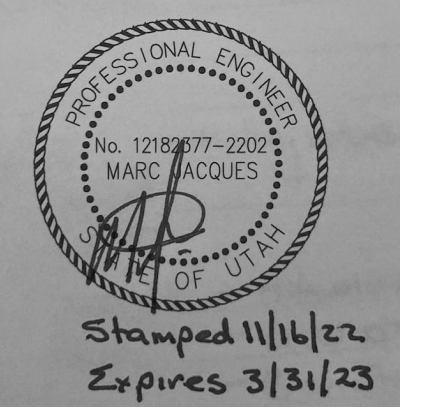 PROFESSIONAL ENGINEER
No. 12182377-2202
MARC JACQUES
STATE OF UTAH
Stamped 11/16/22
Expires 3/31/23